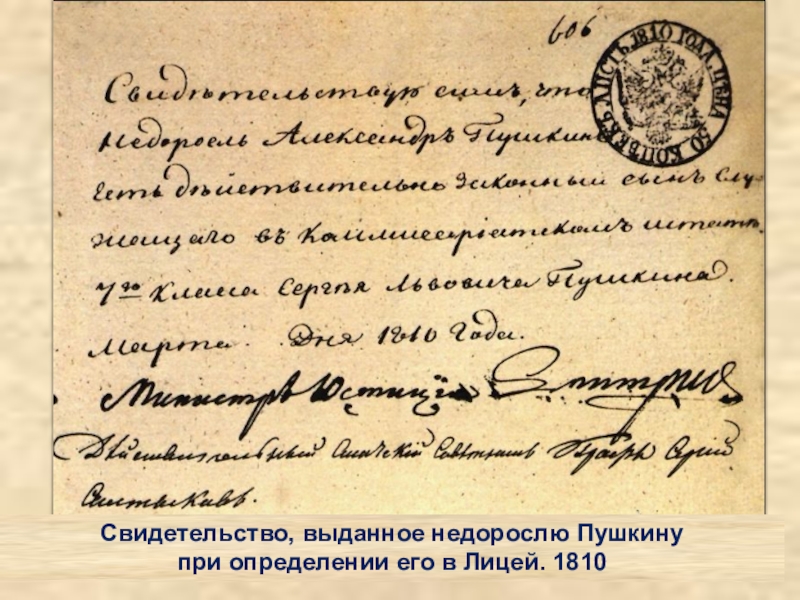 606
ЛИСТЪ 1810 ГОДА. ЦѢНА 50 КОПѢЕКЪ
Свидѣтельствую симъ, что
Недоросль Александръ Пушкинъ
Есть дѣйствительно Законный сынъ Слу-
жащаго въ Коммисаріатскомъ штатѣ
7го Класса Сергѣя Львовича Пушкина.
Марта Дня 1810 Года.
Министръ Юстиціи Дмитріевъ
Дѣйствительный Статскій Совѣтникъ Графъ Сергій
Салтыковъ.
Свидетельство, выданное недорослю Пушкину
при определении его в Лицей. 1810